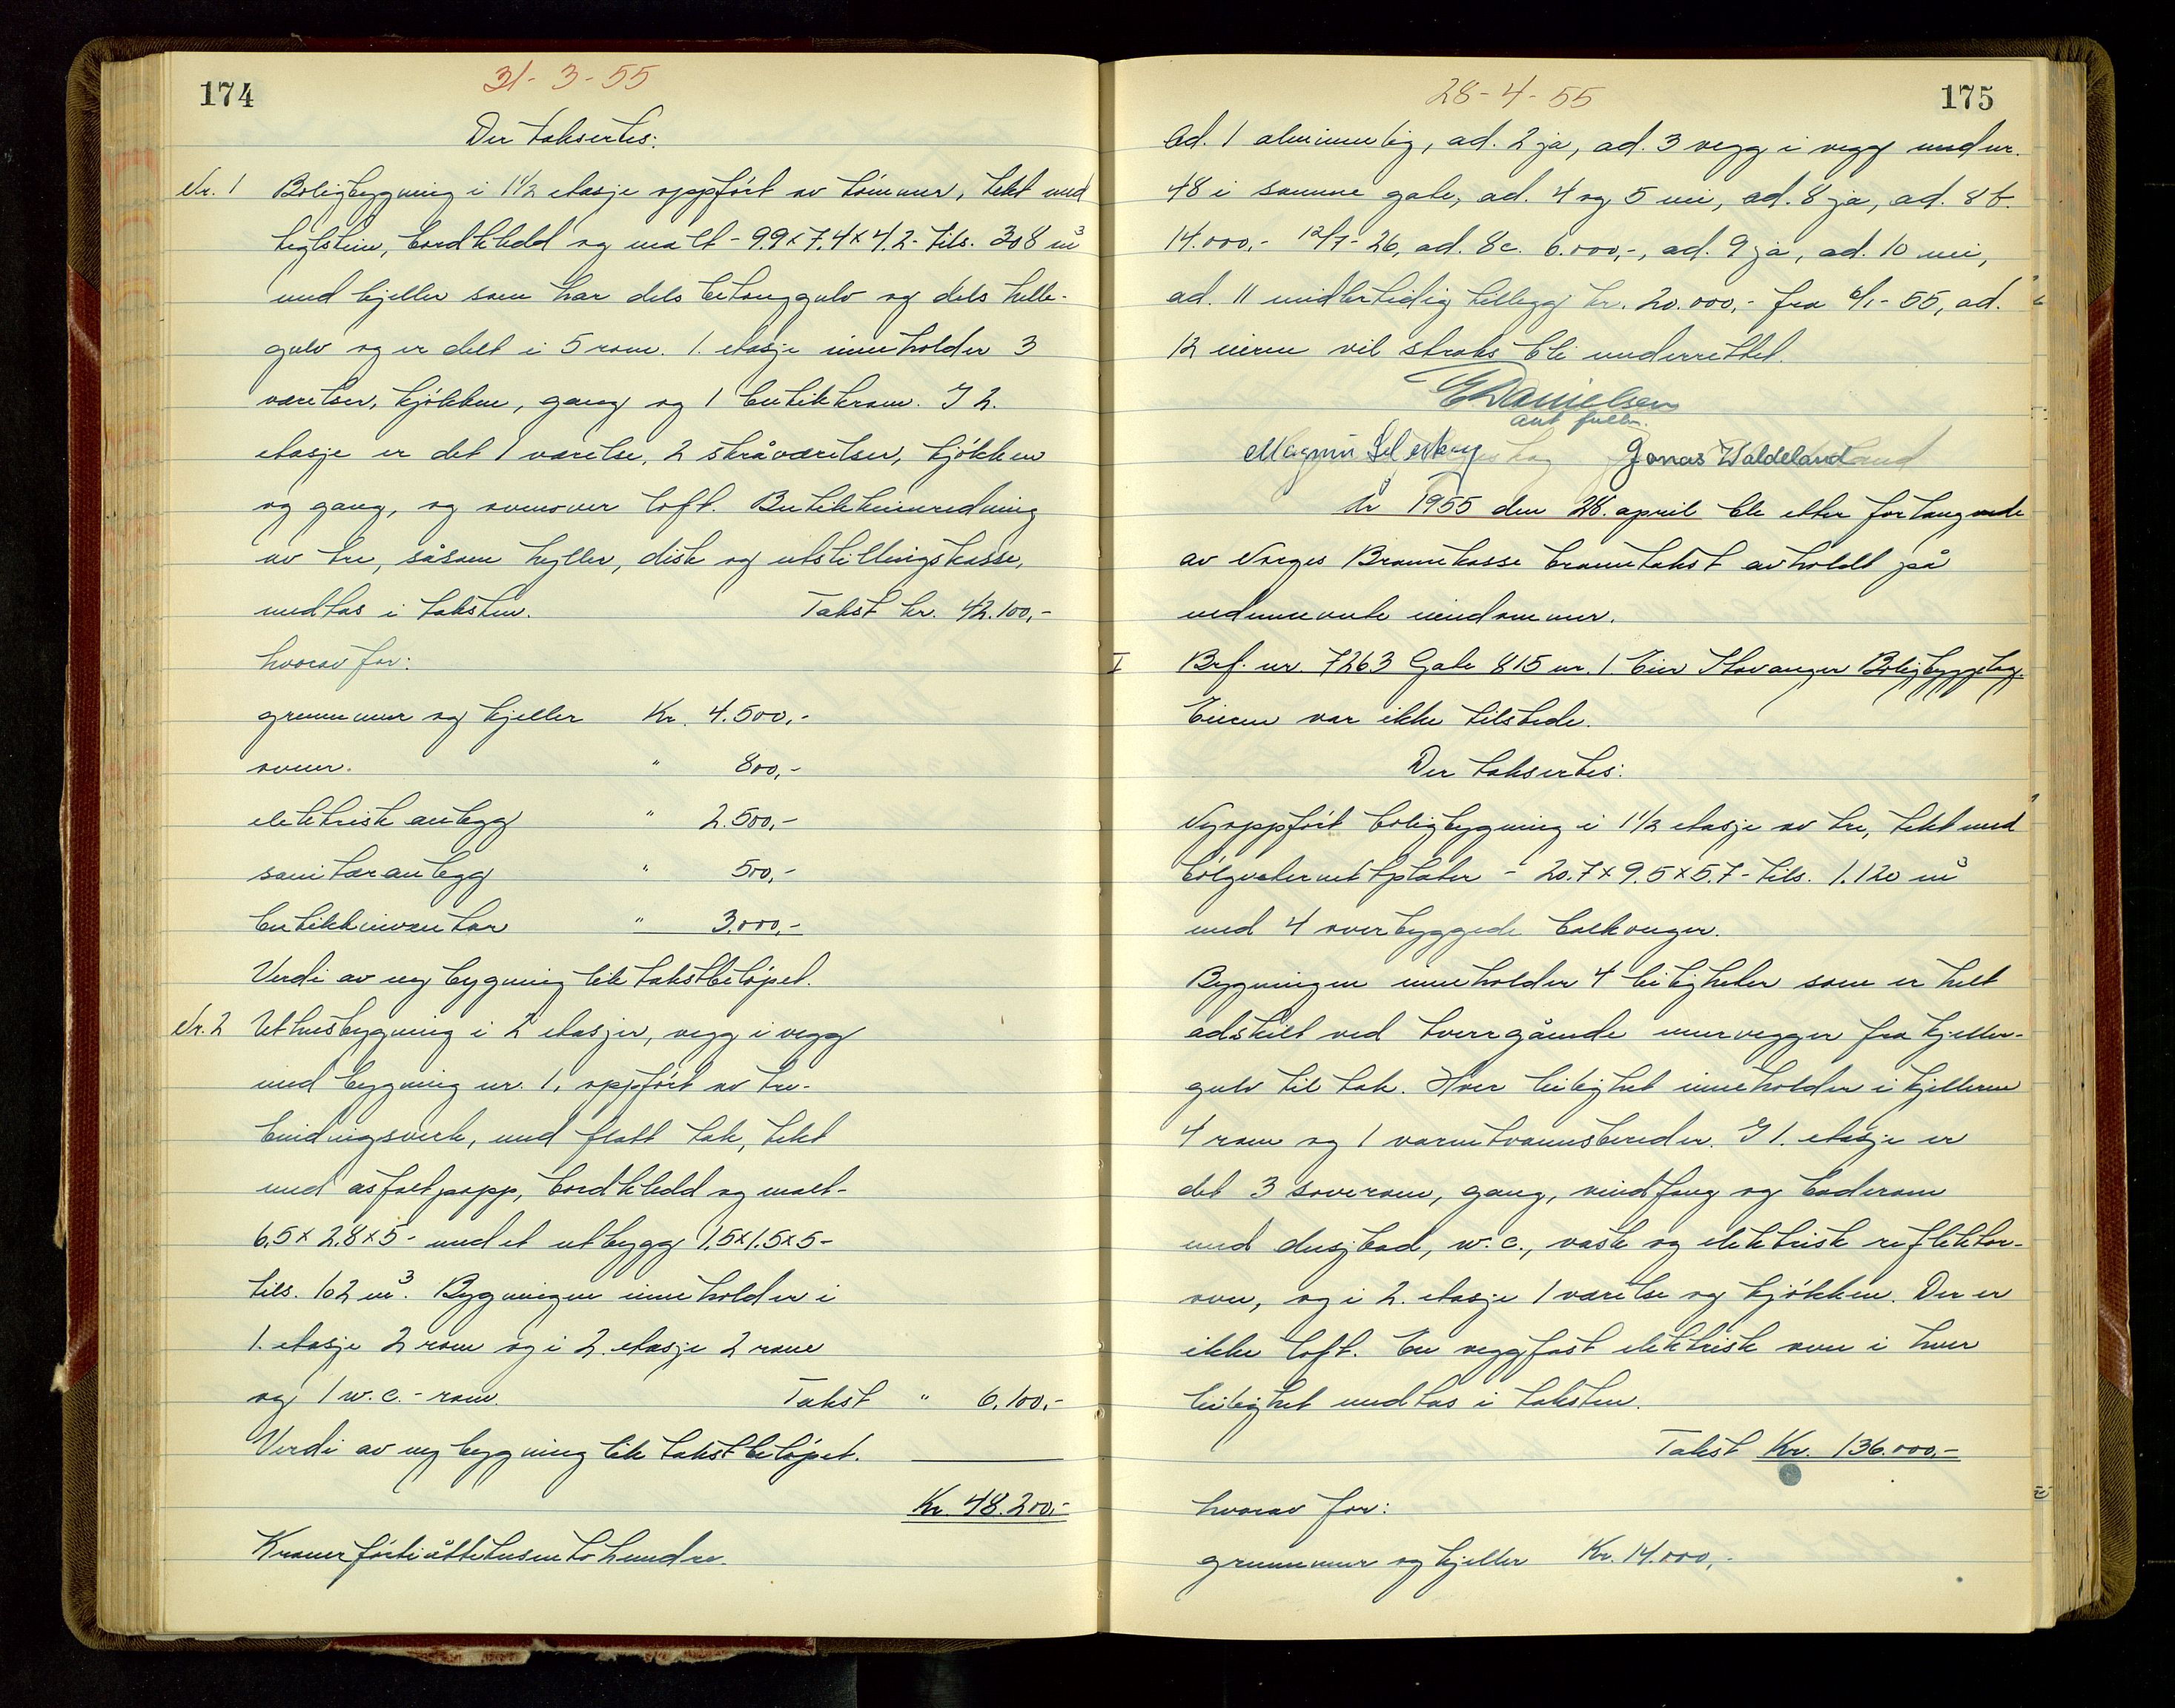 174
31-3-55
Der taksertes:
Nr. 1 Boligbygning i 1 1/2 etasje oppført av tømmer, tekt med
teglstein, bordkledd og malt - 9.9 x 7.4 x 4.2 - tils. 308 m³
med kjeller som har dels betonggulv og dels helle-
gulv og er delt i 5 rom. 1. etasje inneholder 3
værelser, kjøkken, gang og 1 butikkrom. I 2.
etasje er det 1 værelse, 2 skråværelser, kjøkken
og gang, og ovenover loft. Butikkinnredning
av tre, såsom hyller, disk og utstillingskasse,
medtas i taksten. Takst kr. 42.100,-
hvorav for:
grunnmur og kjeller Kr. 4.500,-
ovner. " 800,-
elektrisk anlegg " 2.500,-
sanitæranlegg " 500,-
butikkinventar " 3.000,-
Verdi av ny bygning lik takstbeløpet.
Nr. 2 Uthusbygning i 2 etasjer, vegg i vegg
med bygning nr. 1, oppført av tre-
bindingsverk, med flatt tak, tekt
med asfaltpapp, bordkledd og malt-
6.5 x 2.8 x 5 - med et utbygg 1.5 x 1.5 x 5 -
tils. 102 m³. Bygningen inneholder i
1. etasje 2 rom og i 2. etasje 2 rom
og 1 w.c.-rom. Takst " 6.100,-
Verdi av ny bygning lik takstbeløpet.
Kr. 48.200,-
Kroner førtiåttetusentohundre.
175
28-4-55
Ad. 1 alminnelig, ad. 2 ja, ad. 3 vegg i vegg med nr.
48 i samme gate, ad. 4 og 5 nei, ad. 8 ja, ad. 8 b.
14.000,- 12/7-26, ad. 8c. 6.000,-, ad. 9 ja, ad. 10 nei,
ad. 11 midlertidig tillegg kr. 20.000,- fra 6/1-55, ad.
12 eieren vil straks bli underrettet.
E Danielsen
aut fullm.
Magnus Jonas Waldeland
År 1955 den 28. april ble etter forlangende
av Norges Brannkasse branntakst avholdt på
nedennevnte eiendommer.
I Brf. nr. 7263 Gate 815 nr. 1. Eier Stavanger Boligbyggelag.
Eieren var ikke tilstede.
Der taksertes:
Nyoppført boligbygning i 1 1/2 etasje av tre, tekt med
bølgeeternittplater - 20.7 x 9.5 x 5.7 - tils. 1.120 m³
med 4 overbyggede balkonger.
Bygningen inneholder 4 leiligheter som er helt
adskilt ved tverrgående murvegger fra kjeller-
gulv til tak. Hver leilighet inneholder i kjelleren
4 rom og 1 varmtvannsbereder. I 1. etasje er
det 3 soverom, gang, vindfang og baderom
med dusjbad, w.c., vask og elektrisk reflektor-
ovn, og i 2. etasje 1 værelse og kjøkken. Der er
ikke loft. En veggfast elektrisk ovn i hver
leilighet medtas i taksten.
Takst Kr. 136.000,-
hvorav for:
grunnmur og kjeller Kr. 14.000,-